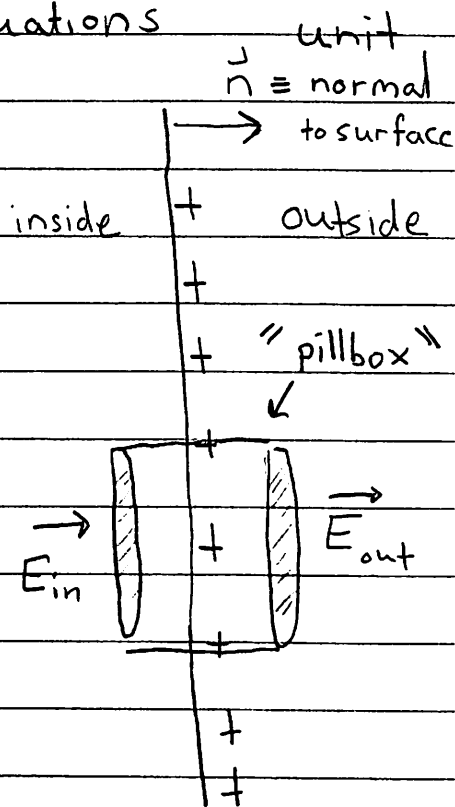 uations
unit
n ≡ normal
to surface
inside
outside
+
+
+
" pillbox "
+
+
E in
E out
+
+
+